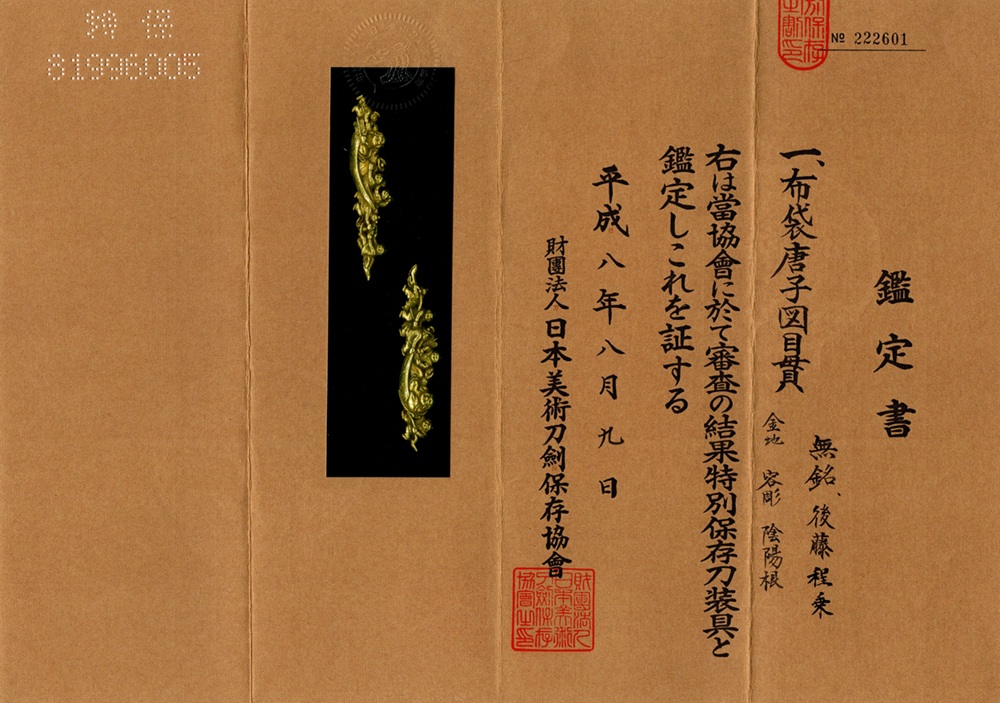 鑑定書
No 222601
一、布袋唐子図目貫
無銘、後藤程乗
金地 容彫 陰陽根
右は當協會に於て審査の結果特別保存刀装具と
鑑定しこれを証する
平成八年八月九日
財團法人 日本美術刀劍保存協會
財團法人日本美術刀劍保存協會之印
特保
81996005